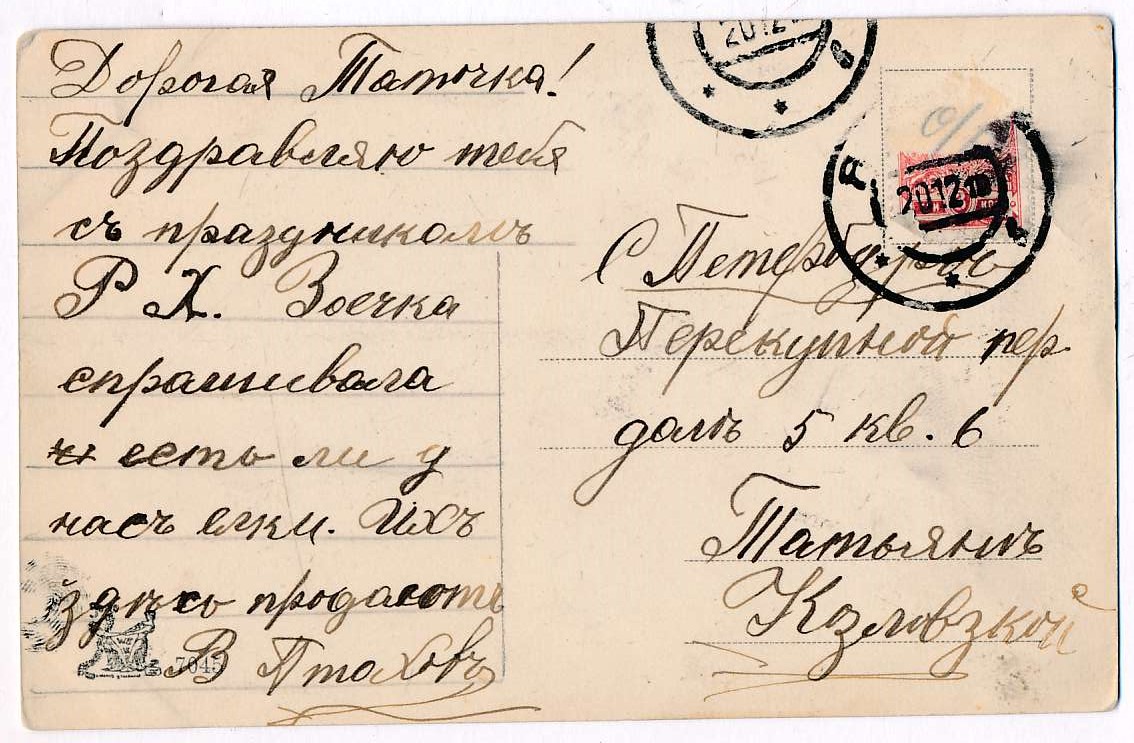 Дорогая Таточка!
Поздравляю тебя
съ праздникомъ
Р Х. Зоечка
спрашивала
есть ли у
насъ елки. Ихъ
здѣсь продаютъ
В Птаховъ
7045
20 12
20 12 10
С Петербургъ
Перекупной пер
домъ 5 кв. 6
Татьянѣ
Козловзкой